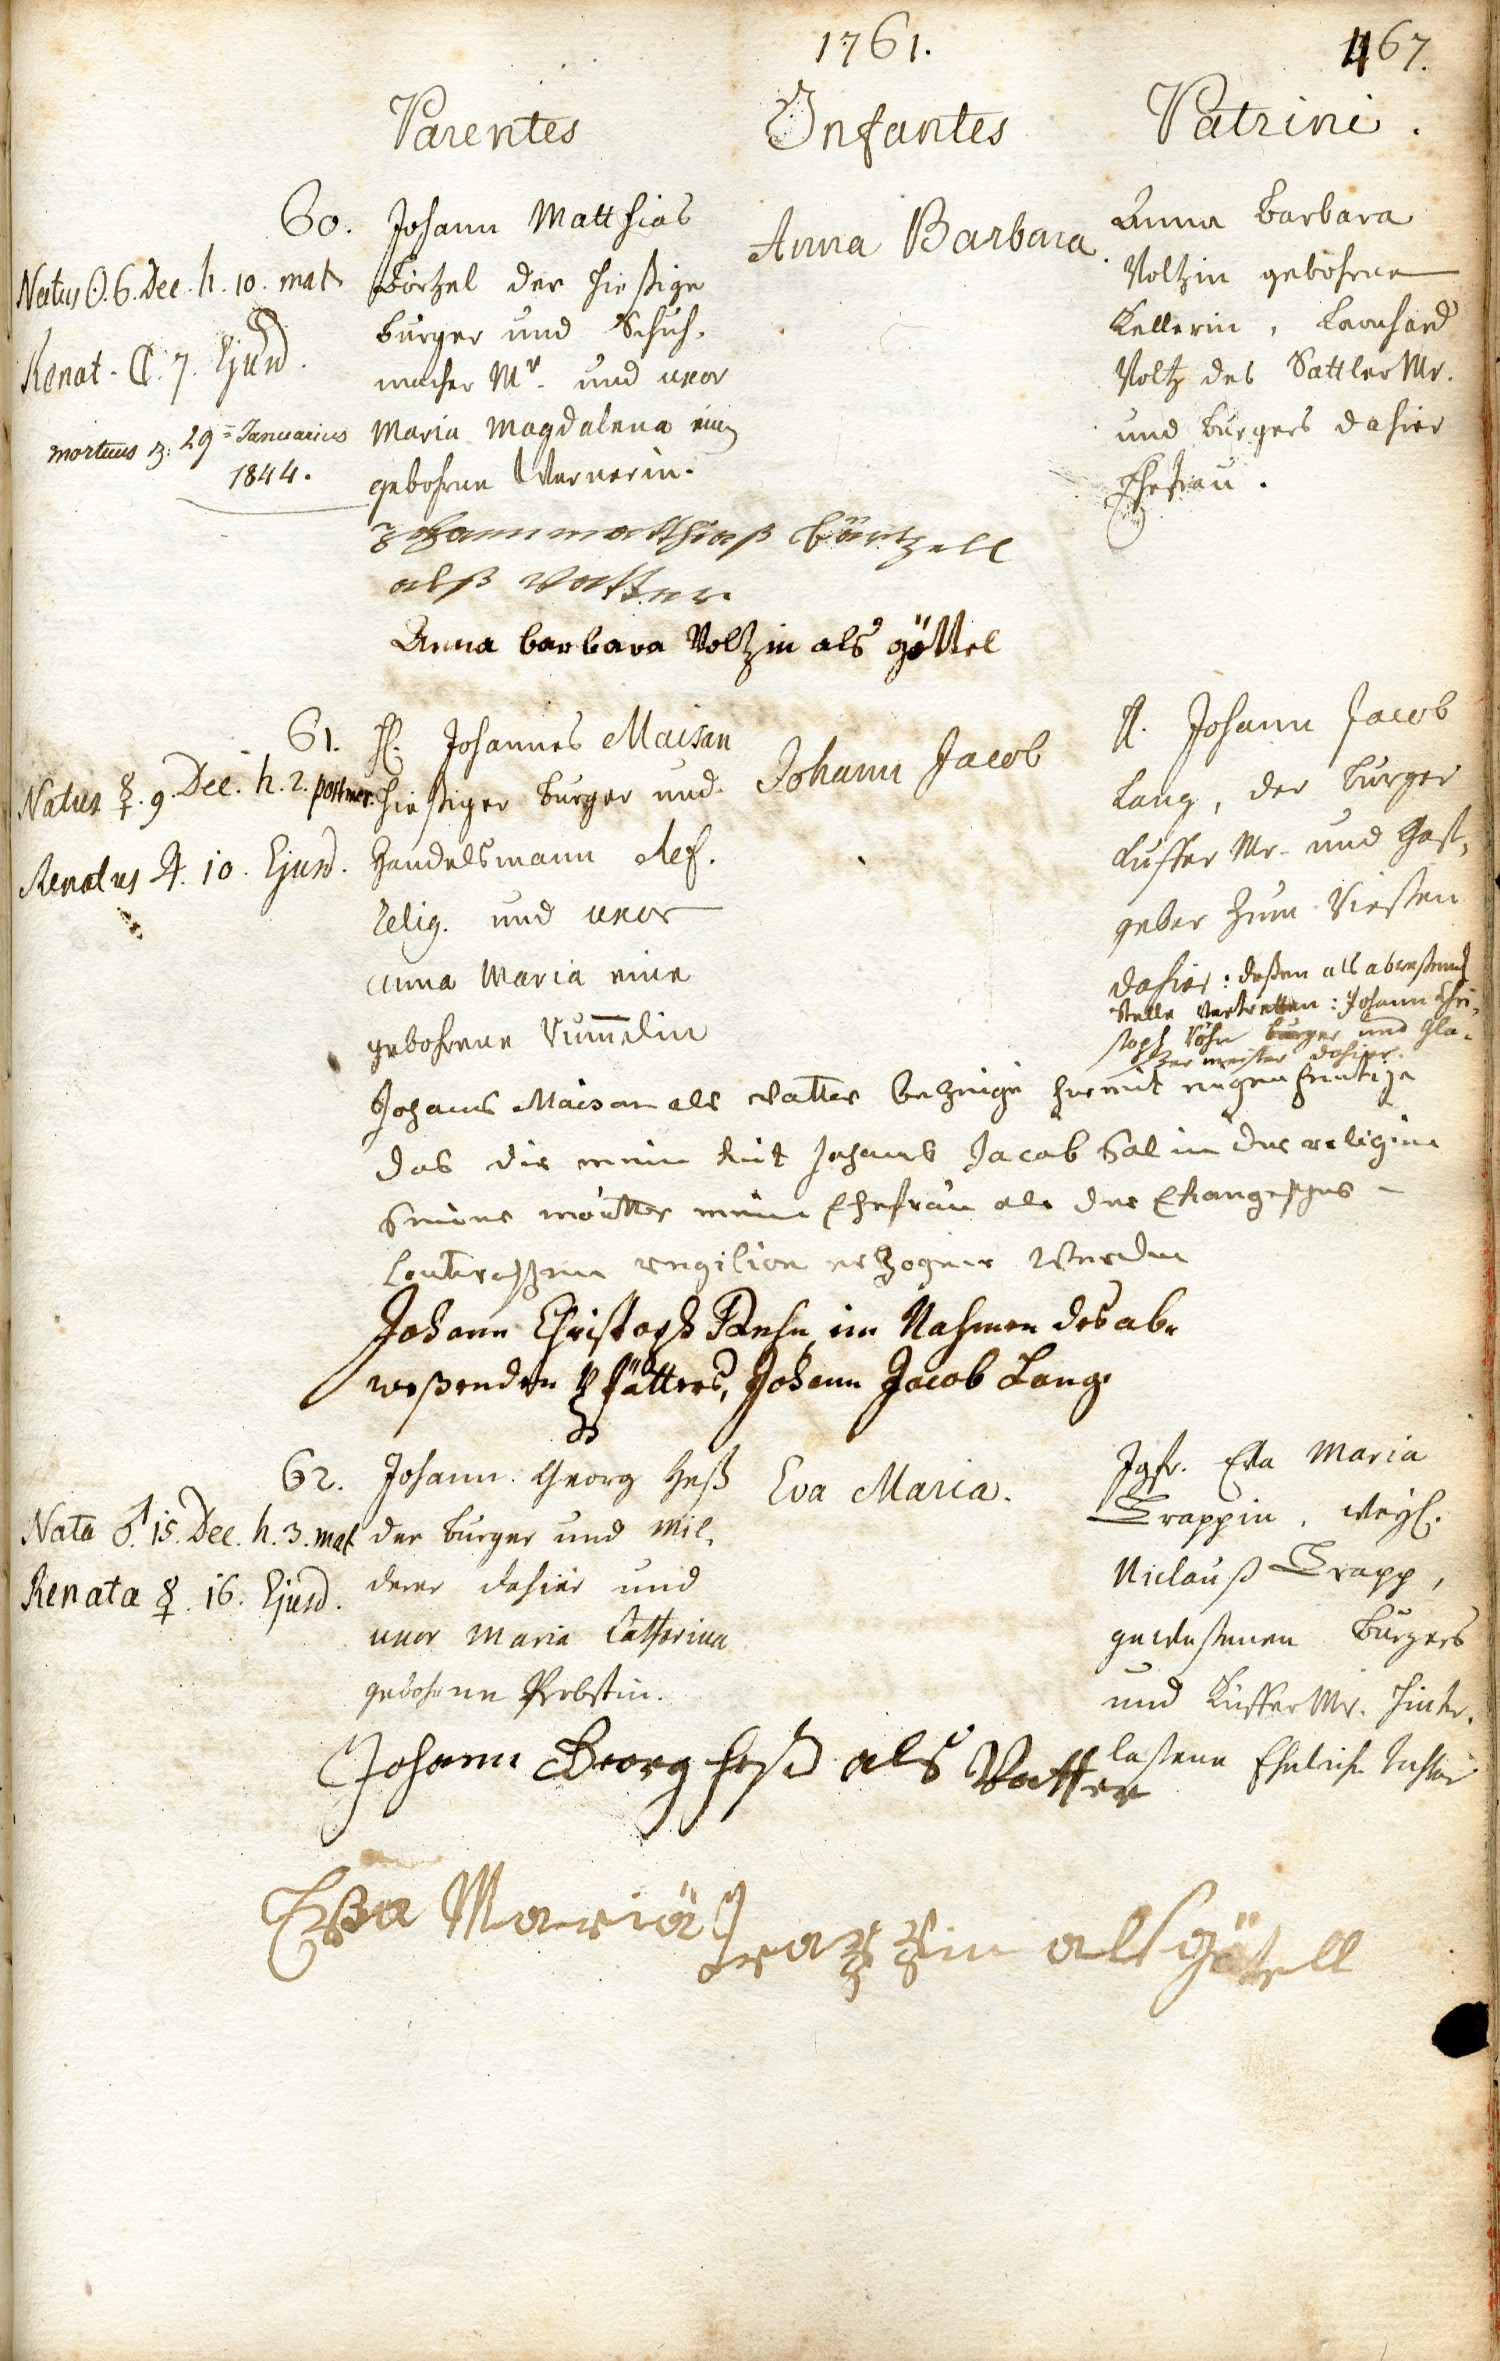 1761.
467.
Parentes
Infantes
Patrini.
60.
Natus ☉. 6. Dec. h. 10. mat
Renat. ☾. 7. Ejusd.
mortuus 29 Januarius
1844.
Johann Matthias
Börtzel der hießige
burger und Schuh-
macher Mr. und uxor
Maria Magdalena eine
gebohrne Wernerin.
Anna Barbara.
Anna Barbara
Voltzin gebohrne
Kellerin, Leonhard
Voltz des Sattler Mr.
und burgers dahier
Ehefrau.
Johann matthiaß börtzell
alß Vatter
Anna barbara Voltzin als göttel
61.
Natus ☿. 9. Dec. h. 2. postmer.
Renatus ♃. 10. Ejusd.
H. Johannes Maisan
hießiger burger und
Handelsmann Ref.
Relig. und uxor
Anna Maria eine
gebohrene Rum̅elin
Johann Jacob
H. Johann Jacob
Lang, der burger
Kuffer Mr. und Gast-
geber zum Rießen
dahier: deßen als abweßend
Stelle vertretten: Johann Chri-
stoph Röhn burger und Gla-
ßer meister dahier.
Johans Maison als vatter bezeuge hiermit eugenhentige
das die mein Kint Johanb Jacob Sal in der religion
Seiner moutter meine Ehefrau als der Ehangeßhes-
louterrißen regilion erzogner werden
Johann Christoph Rehn, im Nahmen des ab-
weßenden Pfätters, Johann Jacob Lang.
62.
Nata ♂. 15. Dec. h. 3. mat
Renata ☿. 16. Ejusd.
Johann Georg Heß
der burger und Mil-
derer dahier und
uxor Maria Catharina
gebohrne Probstin.
Eva Maria.
Jgfr. Eva Maria
Trappin, weyl.
Niclauß Trapp,
geweßenen Burgers
und Kuffer Mr. hinter-
laßene Eheliche Tochter
Johann Georg heß als Vatter
Eva Maria Trappin als götell